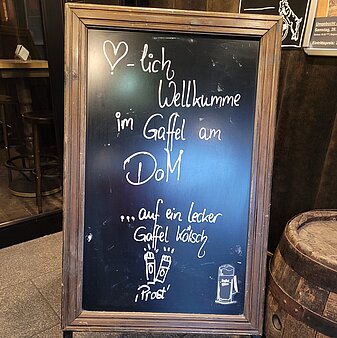 ♡-lich
Wellkumme
im Gaffel am
DoM
...auf ein lecker
Gaffel Kölsch
'Prost'